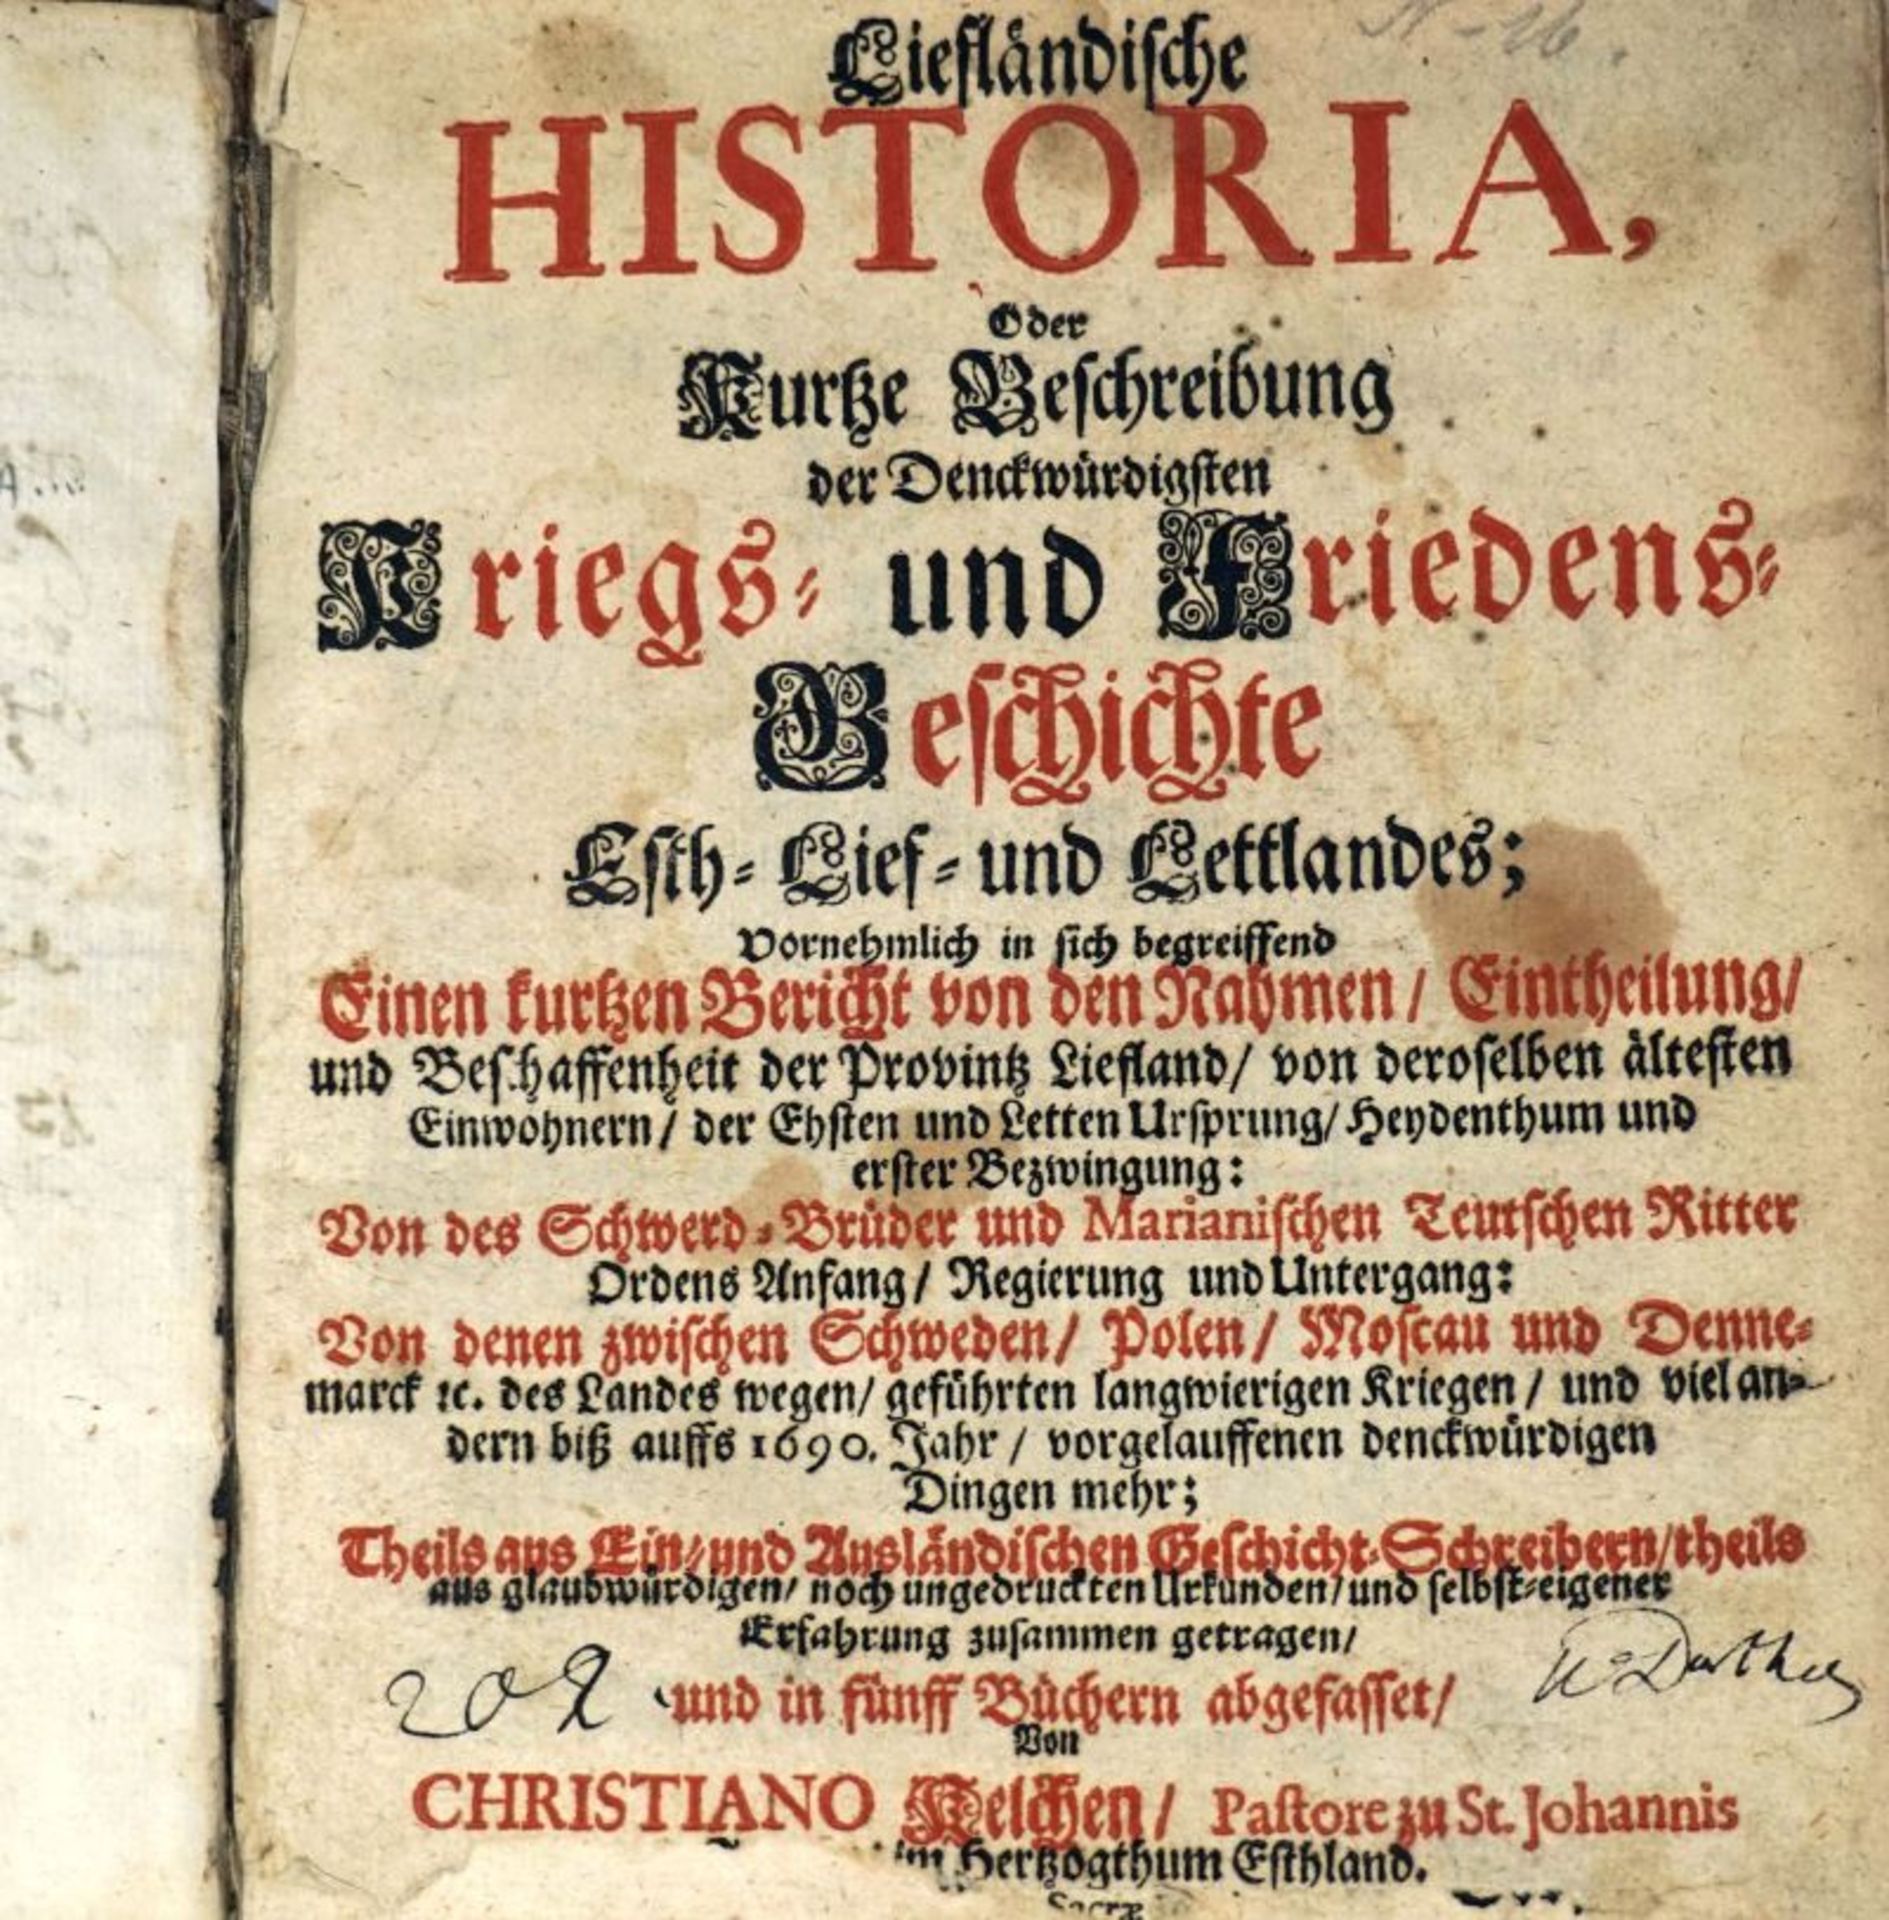 Liefländische
HISTORIA,
Oder
Kurtze Beschreibung
der Denckwürdigsten
Kriegs- und Friedens-
Geschichte
Esth- Lief- und Lettlandes;
Vornehmlich in sich begreiffend
Einen kurtzen Bericht von den Nahmen/ Eintheilung/
und Beschaffenheit der Provintz Liefland/ von deroselben ältesten
Einwohnern/ der Ehsten und Letten Ursprung/ Heydenthum und
erster Bezwingung:
Von des Schwerd-Brüder und Marianischen Teutschen Ritter
Ordens Anfang/ Regierung und Untergang:
Von denen zwischen Schweden/ Polen/ Moscau und Denne-
marck ꝛc. des Landes wegen/ geführten langwierigen Kriegen/ und viel an-
dern biß auffs 1690. Jahr/ vorgelauffenen denckwürdigen
Dingen mehr;
Theils aus Ein- und Ausländischen Geschicht-Schreibern/ theils
aus glaubwürdigen/ noch ungedruckten Urkunden/ und selbst-eigener
Erfahrung zusammen getragen/
202 und in fünff Büchern abgefasset/
Von
CHRISTIANO Kelchen/ Pastore zu St. Johannis
im Hertzogthum Esthland.